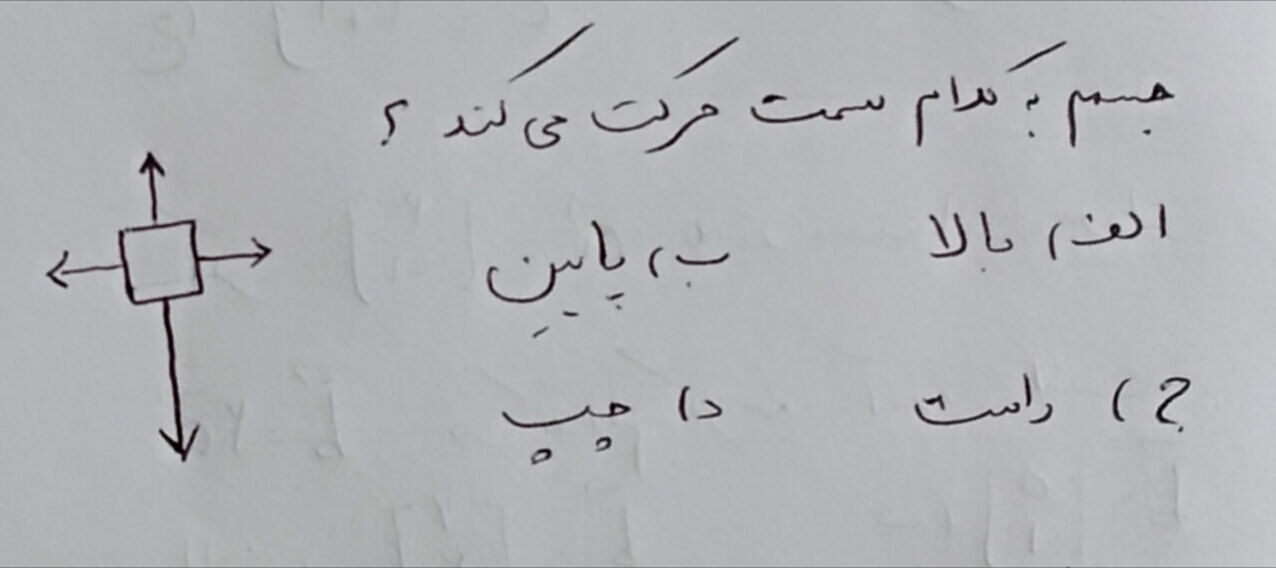 جسم به کدام سمت حرکت می کند ؟
الف) بالا ب) پایین
ج) راست د) چپ